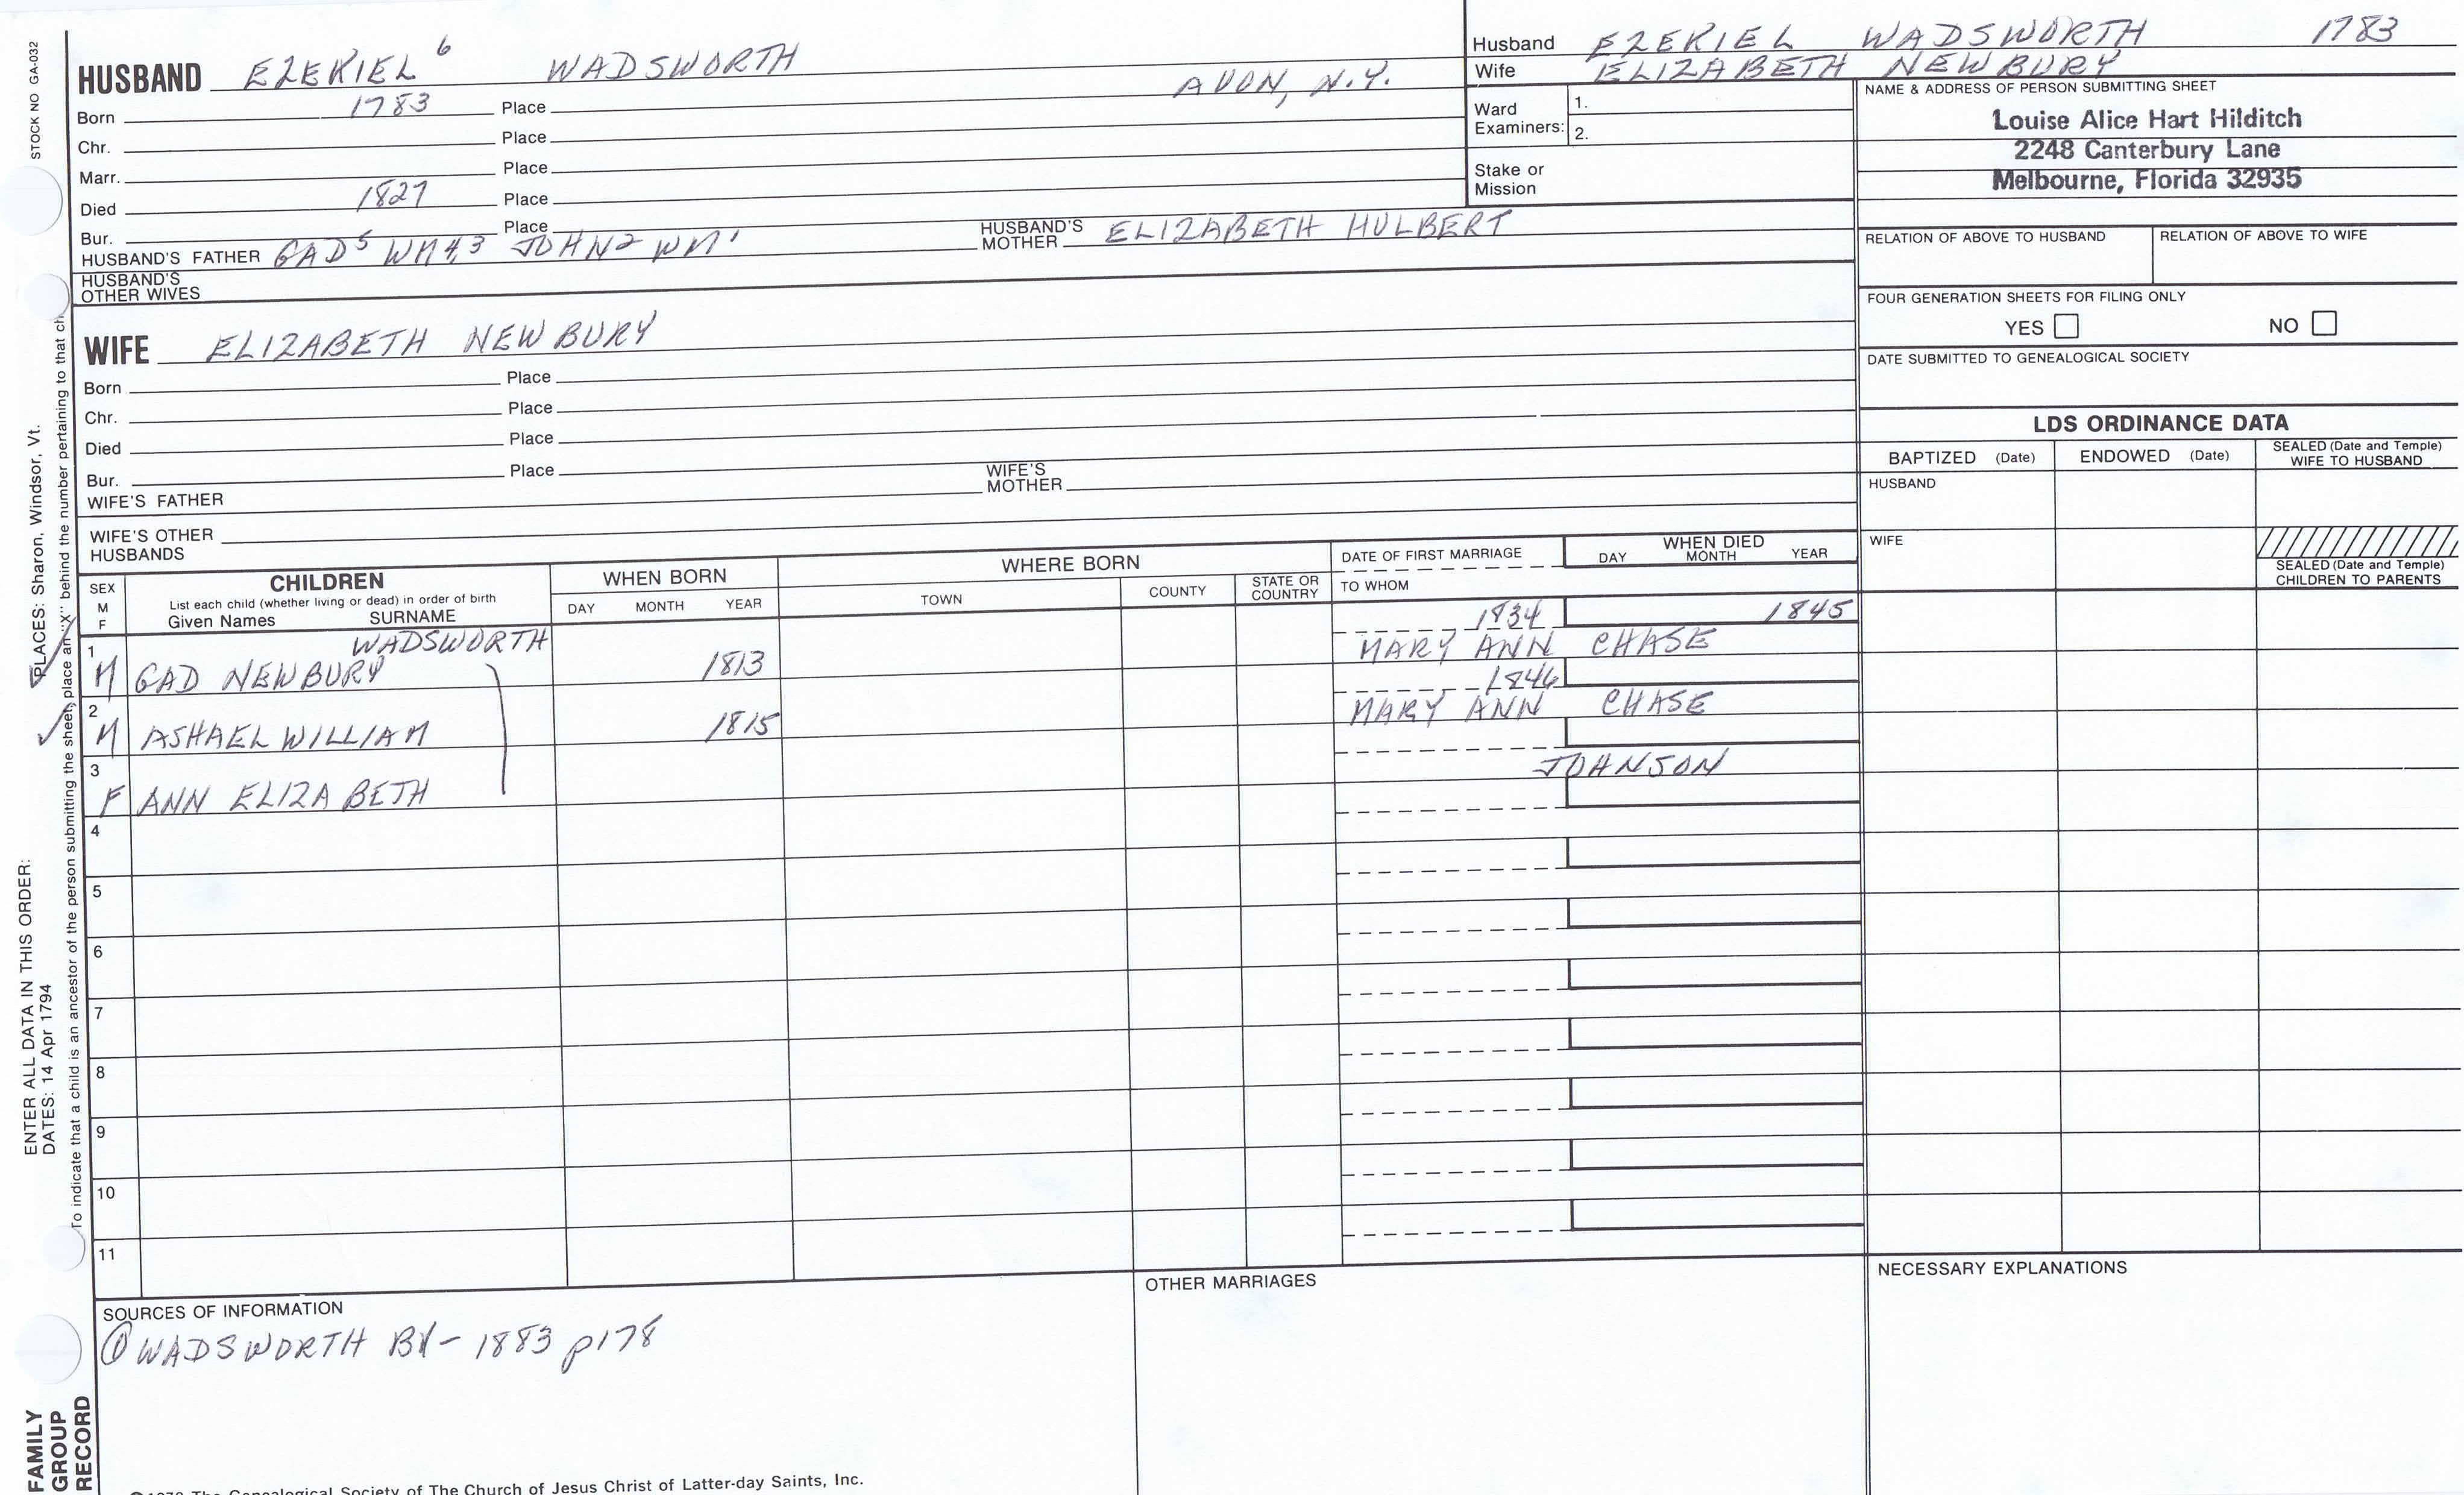 STOCK NO GA-032
HUSBAND EZEKIEL 6 WADSWORTH
Born 1783 Place AVON, N.Y.
Chr. Place
Marr. Place
Died 1827 Place
Bur. Place
HUSBAND'S FATHER GAD5 WM4,3 JOHN2 WM1 HUSBAND'S MOTHER ELIZABETH HULBERT
HUSBAND'S OTHER WIVES
Husband EZEKIEL WADSWORTH 1783
Wife ELIZABETH NEWBURY
Ward Examiners: 1.
2.
Stake or Mission
NAME & ADDRESS OF PERSON SUBMITTING SHEET
Louise Alice Hart Hilditch
2248 Canterbury Lane
Melbourne, Florida 32935
RELATION OF ABOVE TO HUSBAND RELATION OF ABOVE TO WIFE
FOUR GENERATION SHEETS FOR FILING ONLY
YES NO
DATE SUBMITTED TO GENEALOGICAL SOCIETY
WIFE ELIZABETH NEWBURY
Born Place
Chr. Place
Died Place
Bur. Place
WIFE'S FATHER WIFE'S MOTHER
WIFE'S OTHER HUSBANDS
LDS ORDINANCE DATA
BAPTIZED (Date) ENDOWED (Date) SEALED (Date and Temple) WIFE TO HUSBAND
HUSBAND
WIFE
SEALED (Date and Temple) CHILDREN TO PARENTS
SEX M F
CHILDREN
List each child (whether living or dead) in order of birth
Given Names SURNAME
WHEN BORN
DAY MONTH YEAR
WHERE BORN
TOWN COUNTY STATE OR COUNTRY
DATE OF FIRST MARRIAGE
TO WHOM
WHEN DIED
DAY MONTH YEAR
1 WADSWORTH 1834 1845
M GAD NEWBURY 1813 MARY ANN CHASE
2 1846
M ASHAEL WILLIAM 1815 MARY ANN CHASE
3
F ANN ELIZABETH JOHNSON
4
5
6
7
8
9
10
11
SOURCES OF INFORMATION
① WADSWORTH BK- 1883 p178
OTHER MARRIAGES
NECESSARY EXPLANATIONS
ENTER ALL DATA IN THIS ORDER:
DATES: 14 Apr 1794
PLACES: Sharon, Windsor, Vt.
To indicate that a child is an ancestor of the person submitting the sheet, place an "X" behind the number pertaining to that
FAMILY
GROUP
RECORD
The Genealogical Society of The Church of Jesus Christ of Latter-day Saints, Inc.